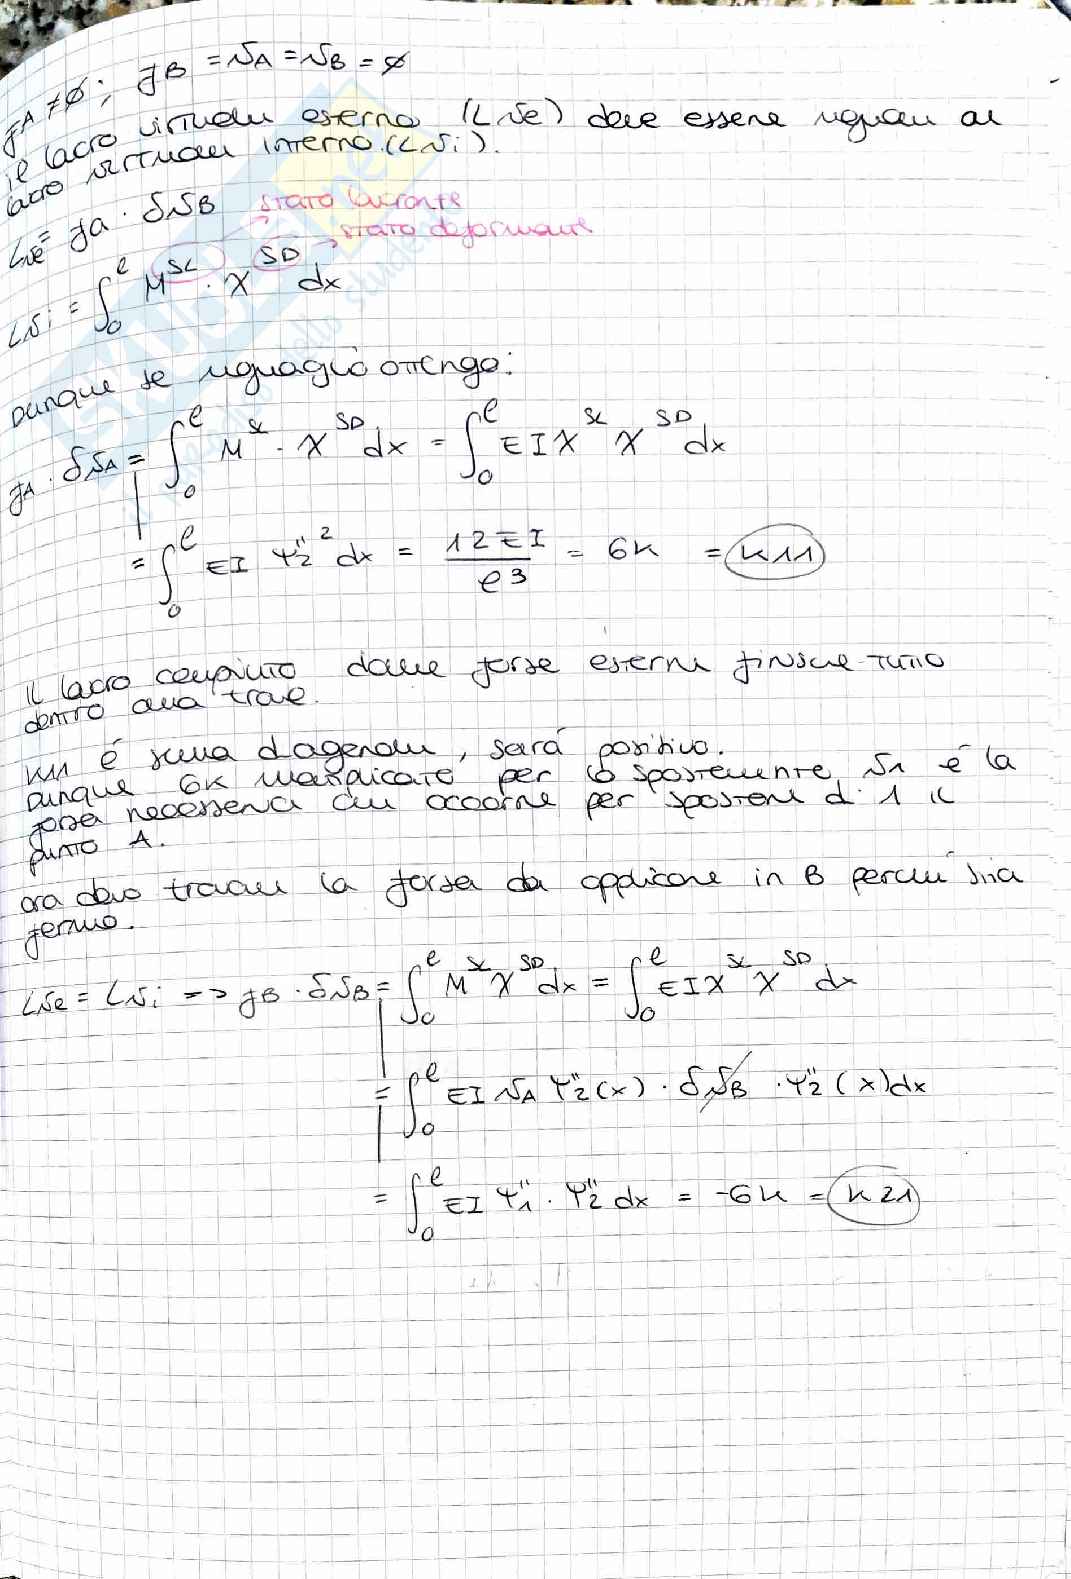 fA ≠ ∅; fB = vA = vB = ∅
il lavoro virtuale esterno (Lve) deve essere uguale al
lavoro virtuale interno (Lvi).
Lve = fA · δvB stato lavorante
stato deformante
Lvi = ∫₀ˡ M^SL · χ^SD dx
Dunque se uguaglio ottengo:
fA · δvA = ∫₀ˡ M^SL · χ^SD dx = ∫₀ˡ EI χ^SL χ^SD dx
= ∫₀ˡ EI Ψ₂''² dx = 12EI/l³ = 6K = K11
Il lavoro compiuto dalle forze esterne finisce tutto
dentro alla trave.
K11 è sulla diagonale, sarà positivo.
Dunque 6K moltiplicato per lo spostamento v1 è la
forza necessaria da per spostare di 1 il
punto A.
Ora devo trovare la forza da applicare in B perché stia
fermo.
Lve = Lvi => fB · δvB = ∫₀ˡ M^SL χ^SD dx = ∫₀ˡ EI χ^SL χ^SD dx
= ∫₀ˡ EI vA Ψ₂''(x) · δvB · Ψ₂''(x) dx
= ∫₀ˡ EI Ψ₁'' · Ψ₂'' dx = -6K = K21